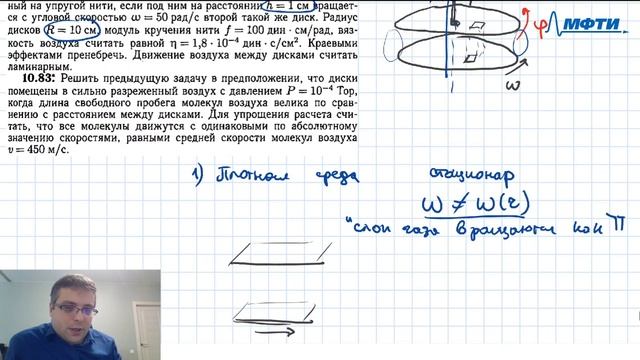 ный на упругой нити, если под ним на расстоянии h = 1 см вращает-
ся с угловой скоростью ω = 50 рад/с второй такой же диск. Радиус
дисков R = 10 см, модуль кручения нити f = 100 дин · см/рад, вяз-
кость воздуха считать равной η = 1,8 · 10⁻⁴ дин · с/см². Краевыми
эффектами пренебречь. Движение воздуха между дисками считать
ламинарным.
10.83: Решить предыдущую задачу в предположении, что диски
помещены в сильно разреженный воздух с давлением P = 10⁻⁴ Тор,
когда длина свободного пробега молекул воздуха велика по срав-
нению с расстоянием между дисками. Для упрощения расчета счи-
тать, что все молекулы движутся с одинаковыми по абсолютному
значению скоростями, равными средней скорости молекул воздуха
v = 450 м/с.
φ
МФТИ
ω
1) Плотная среда
стационар
ω ≠ ω(r)
"слои газа вращаются как